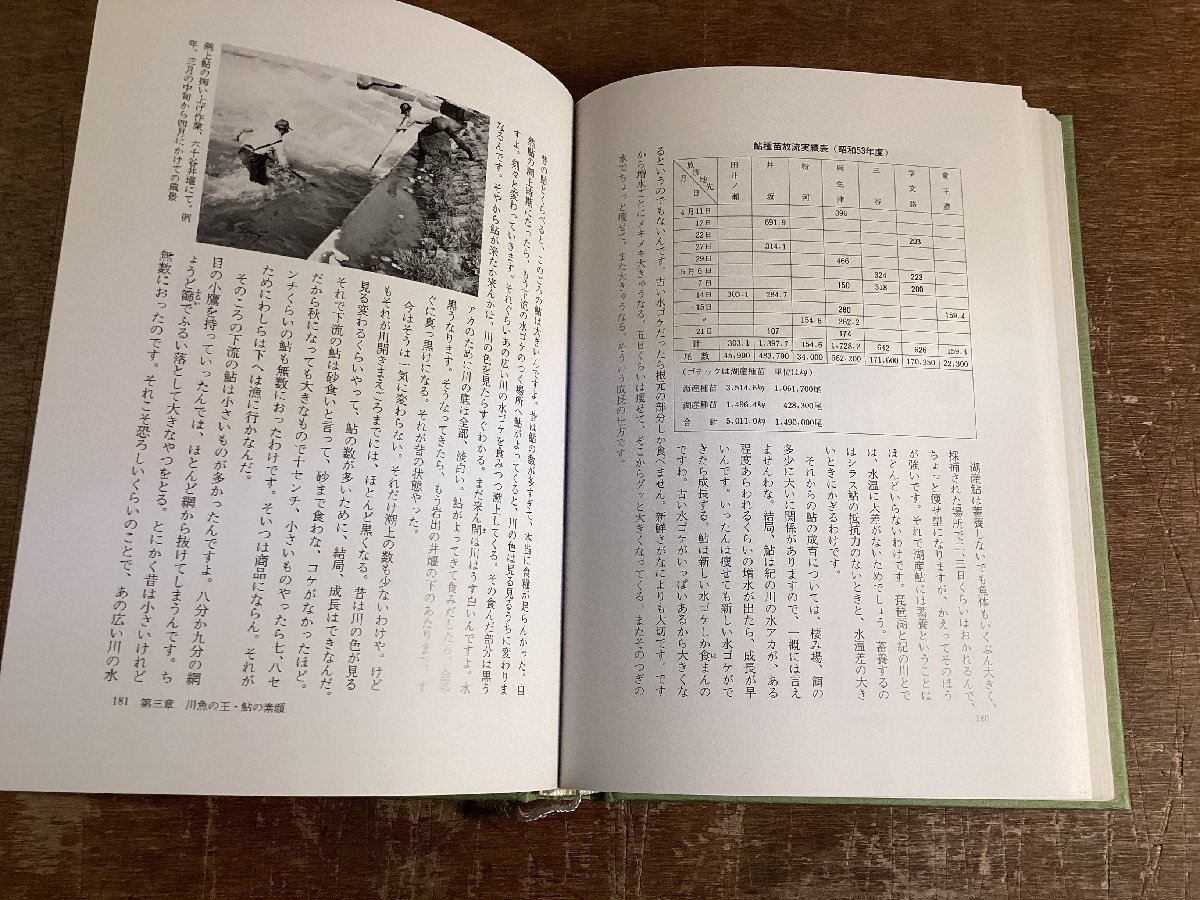 鮎種苗放流実績表（昭和53年度）
放流地先 月日 田井ノ瀬 井坂 粉河 麻生津 三谷 学文路 竜王渡
4月11日 396
12日 691.9
22日 203
27日 314.1
29日 466
5月6日 324 223
7日 150 318 200
14日 303.1 284.7
15日 280 159.4
〃 154.6 262.2
21日 107 174
計 303.1 1,397.7 154.6 1,728.2 642 626 159.4
尾数 45,900 483,700 34,000 562,200 171,600 170,250 22,300
（ゴチックは湖産種苗 単位は㎏）
海産種苗 3,514.6㎏ 1,061,700尾
湖産種苗 1,496.4㎏ 428,300尾
合計 5,011.0㎏ 1,490,000尾
湖産鮎は蓄養しないでも魚体もいくぶん大きく、
採捕された場所で二、三日くらいはおかれるんで、
ちょっと痩せ型になりますが、かえってそのほう
が強いです。それで湖産鮎には蓄養ということは
ほとんどいらないわけです。琵琶湖と紀の川とで
は、水温に大差がないためでしょう。蓄養するの
はシラス鮎の抵抗力のないときと、水温差の大き
いときにかぎるわけです。
それからの鮎の成育については、棲み場、餌の
多少に大いに関係がありますので、一概には言え
ませんわな。結局、鮎は紀の川の水アカが、ある
程度あらわれるくらいの増水が出たら、成長が早
いんです。いったんは痩せても新しい水ゴケがで
きたら成長する。鮎は新しい水ゴケしか食まんの
ですわ。古い水ゴケがいっぱいあるから大きくな
るというのでもないんです。古い水ゴケだったら根元の部分しか食べません。新鮮さがなによりも大切です。です
から増水ごとにメキメキ大きゅうなる。五日くらいは痩せて、そこからグッと大きくなってくる。またそのつぎの
水でちょっと痩せて、また大きゅうなる。そういう成長の仕方です。
160
昔の鮎とくらべると、このごろの鮎は大きいんですよ。昔は鮎の数が多すぎて、本当に食糧が足らんかった。日
然鮎の溯上時期になったら、もう下流の水ゴケのつく場所へ鮎がよってくると、川の色は見る見るうちに変わりま
すよ。刻々と変わっていきます。それぐらいあの広い川の水ゴケを食みつつ溯上してくる。その食んだ部分は黒う
なるんです。そやから鮎が来たか来んかは、川の色を見たらすぐわかる。まだ来ん間は川はうす白いんですよ。水
アカのために川の底は全部、淡白い。鮎がよってきて食みだしたら、全部
黒うなります。そうなってきたら、もう岩出の井堰の下のあたりまで、す
ぐに真っ黒けになる。それが昔の状態やった。
今はそうは一気に変わらない。それだけ溯上の数も少ないわけや。けど
もそれが川開きまえごろまでには、ほとんど黒くなる。昔は川の色が見る
見る変わるくらいやって、鮎の数が多いために、結局、成長はできなんだ。
それで下流の鮎は砂食いと言って、砂まで食わな、コケがなかったほど。
だから秋になっても大きなもので十センチ、小さいものやったら七、八セ
ンチくらいの鮎も無数におったわけです。そいつは商品にならん。それが
ためにわしらは下へは漁に行かなんだ。
そのころの下流の鮎は小さいものが多かったんですよ。八分か九分の網
目の小鷹を持っていったんでは、ほとんど網から抜けてしまうんです。ち
ょうど篩でふるい落として大きなやつをとる。とにかく昔は小さいけれど
無数におったのです。それこそ恐ろしいくらいのことで、あの広い川の水
溯上鮎の掬い上げ作業、六十谷井堰にて。例
年、三月の中旬から四月にかけての風景
181 第三章 川魚の王・鮎の素顔